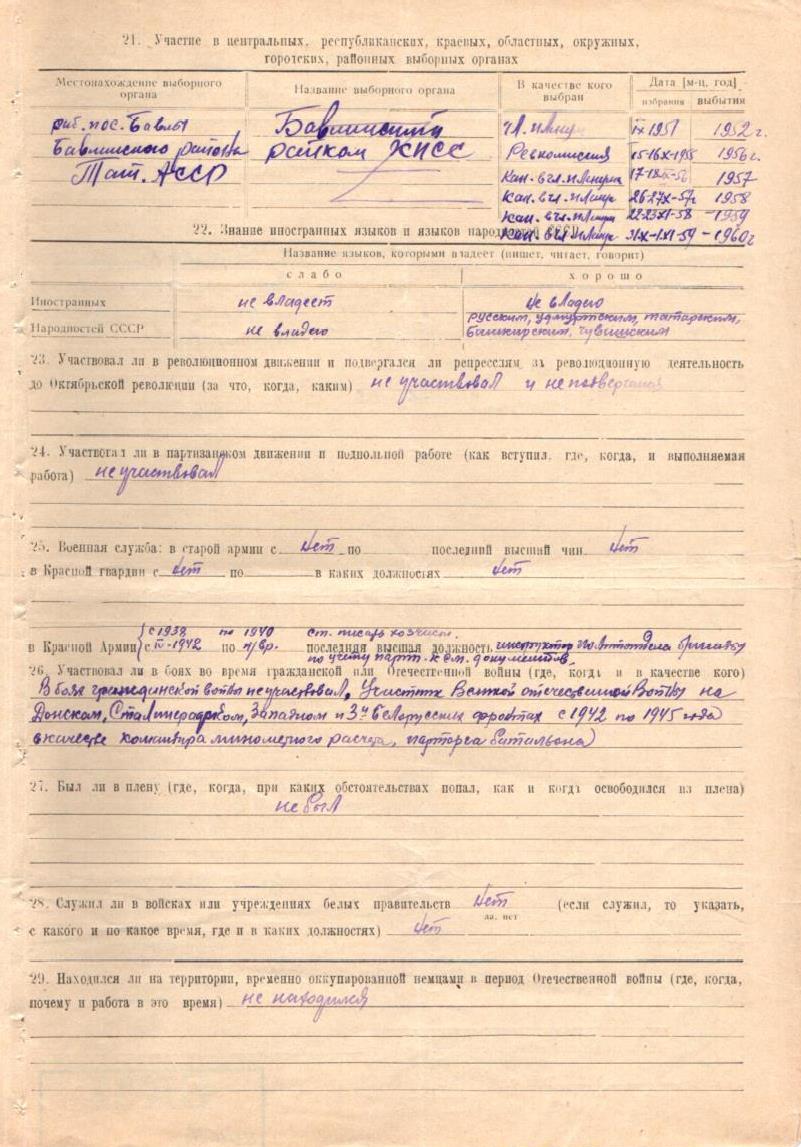 21. Участие в центральных, республиканских, краевых, областных, окружных,
городских, районных выборных органах
Местонахождение выборного органа
Название выборного органа
В качестве кого выбран
Дата [м-ц, год]
избрания
выбытия
раб. пос. Бавлы Бавлинский чл. плен IX 1951 1952 г.
Бавлинского района райком КПСС Ревкомиссия 15-16 X-1955 1956 г.
Тат. АССР Кан. в чл. пленума 17-18 1957
Кан. в чл. 26-27 X-57г 1958
Кан. в чл. 22-23 XI-58 -1959
22. Знание иностранных языков и языков народностей СССР
Кан. в чл. 31X-1XI-59 -1960г
Название языков, которыми владеет (пишет, читает, говорит)
слабо хорошо
Иностранных не владеет не владею
Народностей СССР не владею русским, удмуртским, татарским,
башкирским, чувашским
23. Участвовал ли в революционном движении и подвергался ли репрессиям за революционную деятельность
до Октябрьской революции (за что, когда, каким) не участвовал и не подвергался
24. Участвовал ли в партизанском движении и подпольной работе (как вступил, где, когда, и выполняемая
работа) не участвовал
25. Военная служба: в старой армии с нет по последний высший чин нет
в Красной гвардии с нет по в каких должностях нет
с 1938 по 1940 ст. писарь хозчасти
в Красной Армии с IV-1942 по н/вр. последняя высшая должность инструктор Политотдела бригады
по учету парт. к см. документов.
26. Участвовал ли в боях во время гражданской или Отечественной войны (где, когда и в качестве кого)
В боях гражданской войны не участвовал, Участник Великой отечественной Войны на
Донском, Сталинградском, Западном и 3м Белорусских фронтах с 1942 по 1945 года
в качестве командира минометного расчета, парторга батальона)
27. Был ли в плену (где, когда, при каких обстоятельствах попал, как и когда освободился из плена)
не был
28. Служил ли в войсках или учреждениях белых правительств нет (если служил, то указать,
да, нет
с какого и по какое время, где и в каких должностях) нет
29. Находился ли на территории, временно оккупированной немцами в период Отечественной войны (где, когда,
почему и работа в это время) не находился